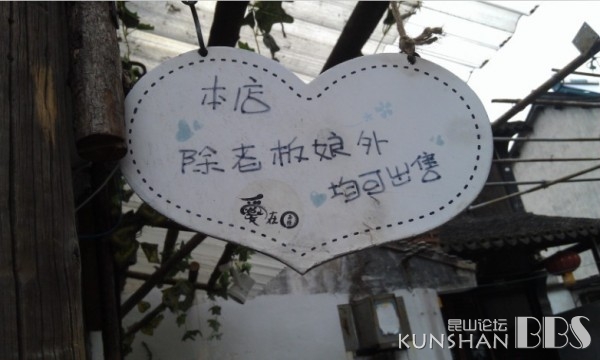 本店
除老板娘外
均可出售
爱在
昆山论坛
KUNSHAN BBS